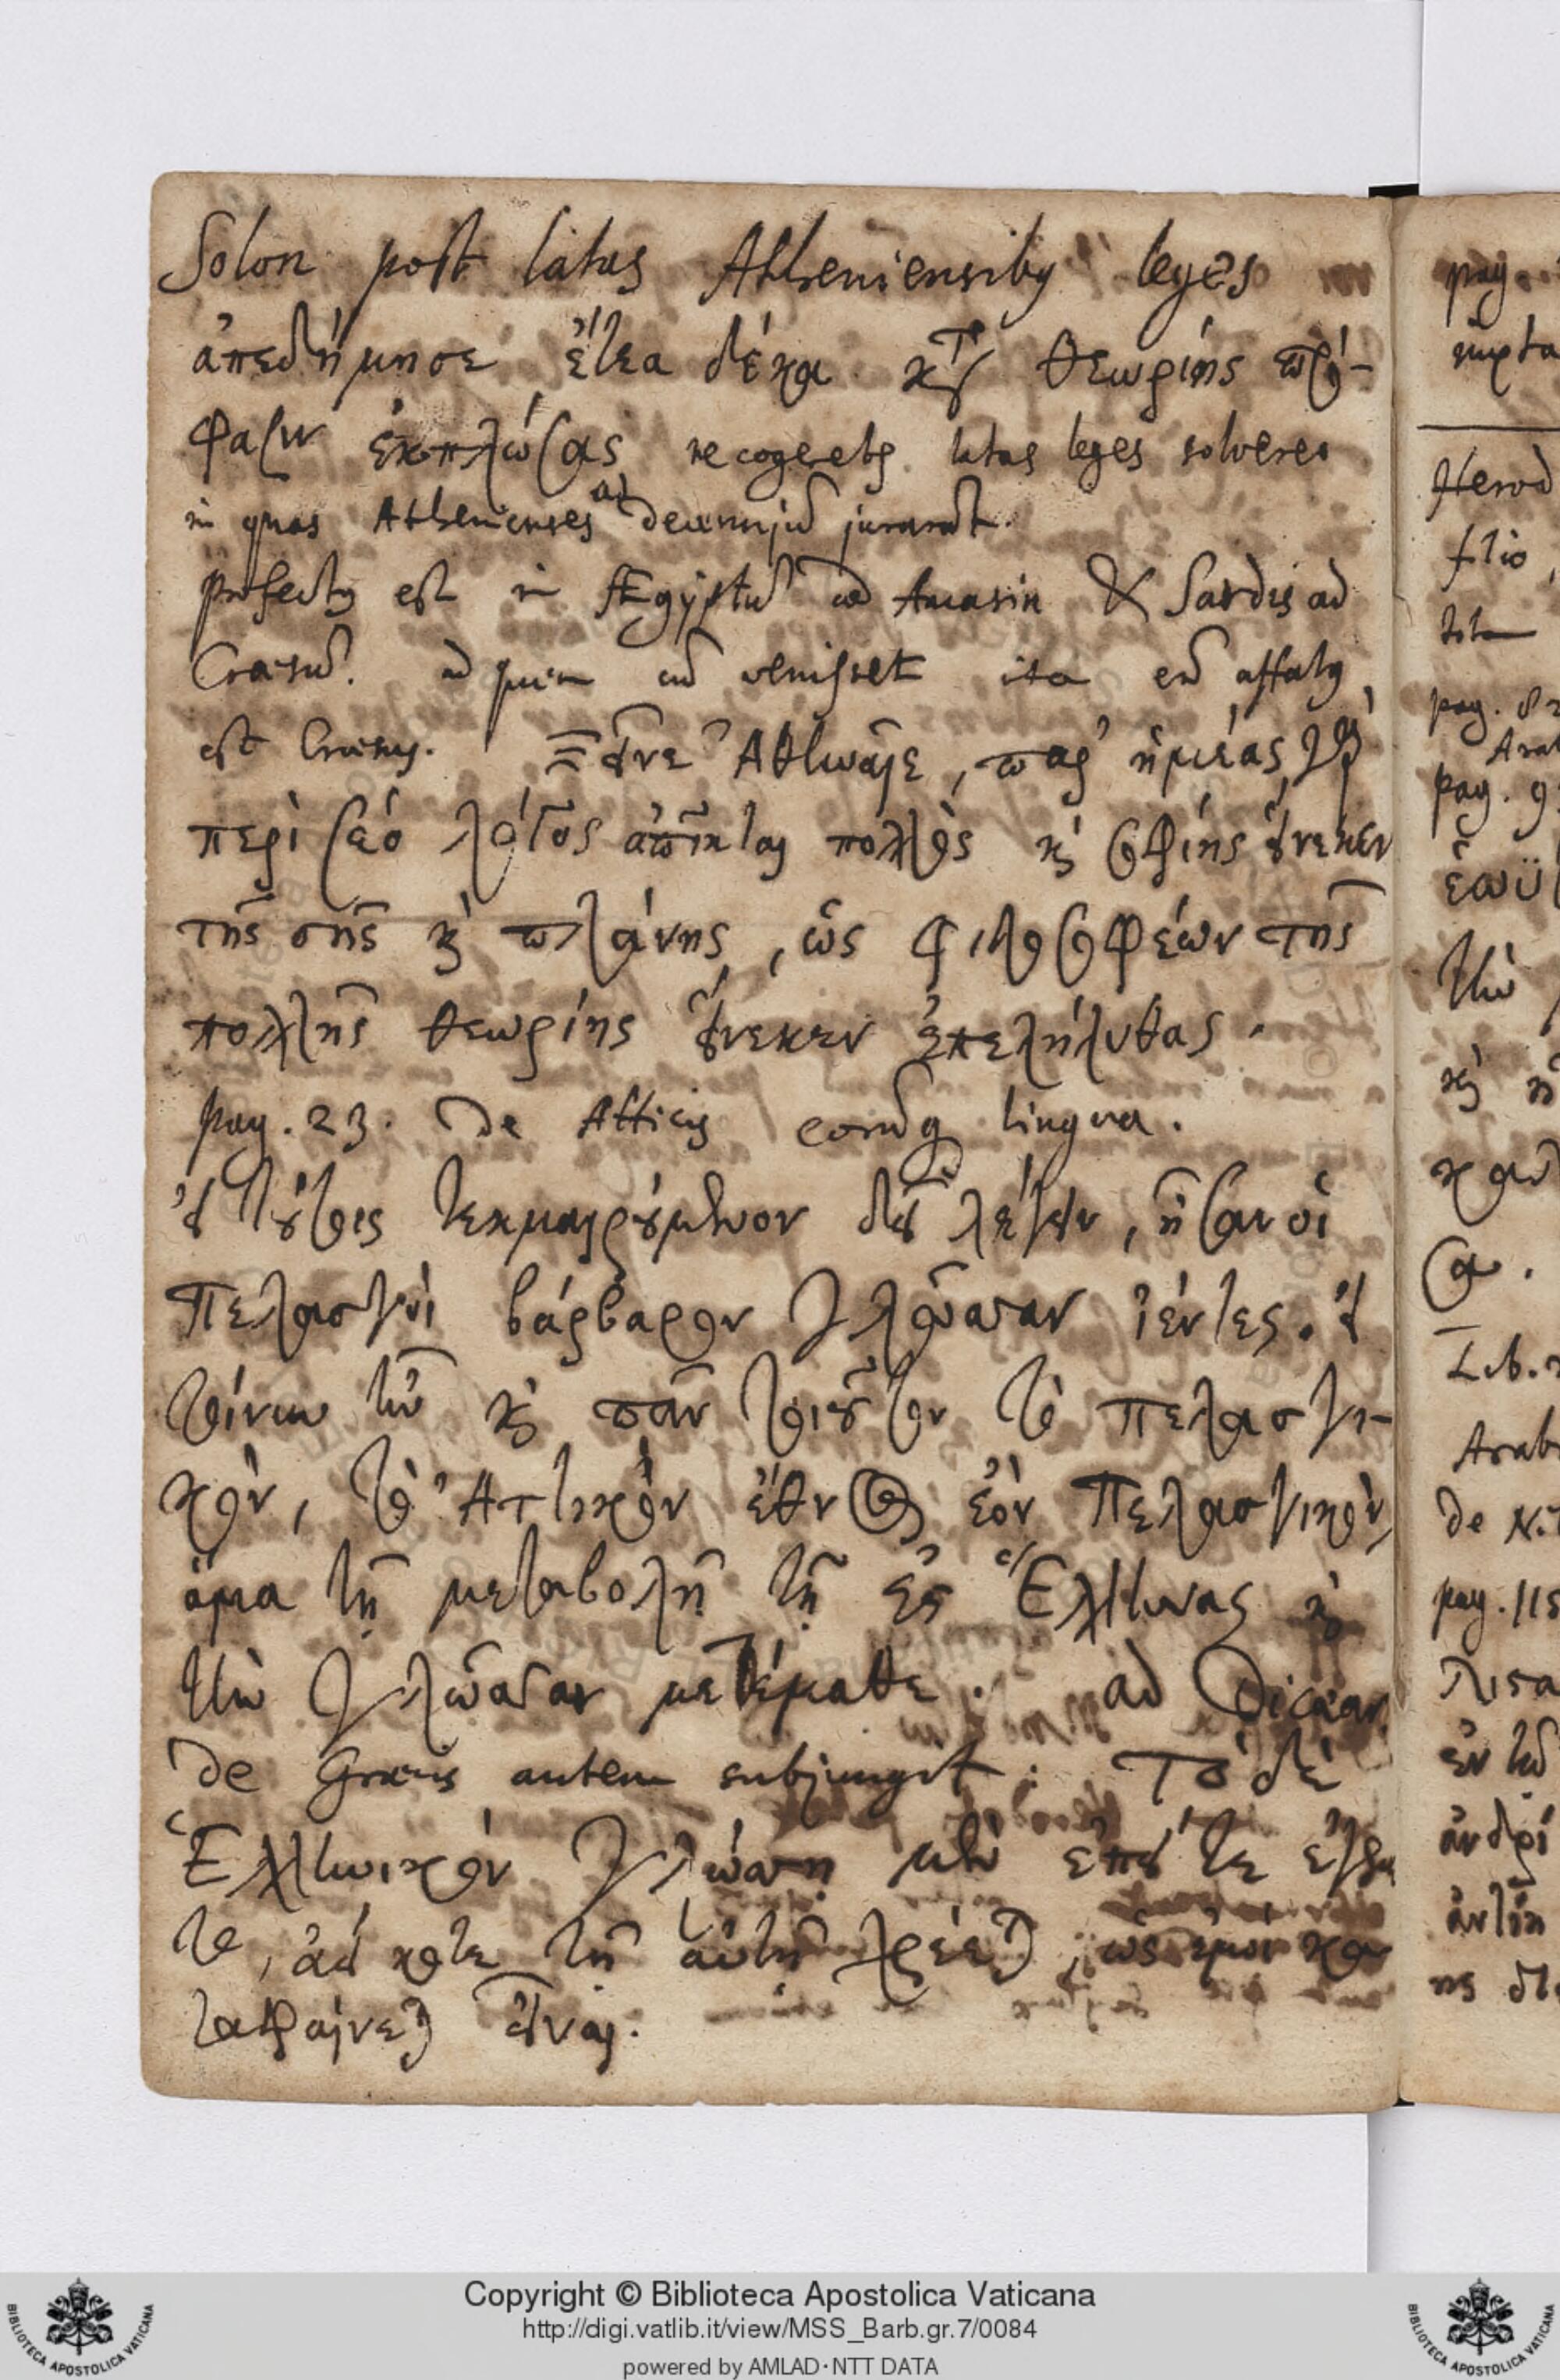 Solon post latas Atheniensibus leges
ἀπεδήμησε ἔτεα δέκα κατὰ θεωρίης πρό-
φασιν ἐκπλώσας, ne cogeretur latas leges solvere
in quas Athenienses ad decennium jurarant.
profectus est in Ægyptum ad Amasin & Sardis ad
Crœsum. ad quem cum venisset ita eum affatus
est Crœsus. Ξεῖνε Ἀθηναῖε, παρ' ἡμέας γὰρ
περὶ σέο λόγος ἀπῖκται πολλὸς καὶ σοφίης εἵνεκεν
τῆς σῆς καὶ πλάνης, ὡς φιλοσοφέων τῆς
πολλῆς θεωρίης εἵνεκεν ἐπελήλυθας.
pag. 23. De Atticis eorumque lingua.
εἰ τούτοις τεκμαιρόμενον δεῖ λέγειν, ἦσαν οἱ
Πελασγοὶ βάρβαρον γλῶσσαν ἱέντες. εἰ
τοίνυν ἦν καὶ πᾶν τοιοῦτον τὸ πελασγι-
κὸν, τὸ Ἀττικὸν ἔθνος ἐὸν Πελασγικὸν,
ἅμα τῇ μεταβολῇ τῇ ἐς Ἕλληνας καὶ
τὴν γλῶσσαν μετέμαθε. ad Dicæar.
de Græcis autem subjungit: Τὸ δὲ
Ἑλληνικὸν γλώσσῃ μὲν ἐπεί τε ἐγένε
το, ἀεί κοτε τῇ αὐτῇ χρέεται, ὡς ἐμοὶ κα
ταφαίνεται εἶναι.
pag.
Herod
filio,
pag. 82
Arab
pag. 9
ἑωϋ
τὴν
καὶ ἡ
Lib. 2
Arab
de N.
pag. 115
ἐν τῷ
ἀνδρί
Copyright © Biblioteca Apostolica Vaticana
http://digi.vatlib.it/view/MSS_Barb.gr.7/0084
powered by AMLAD·NTT DATA
BIBLIOTECA APOSTOLICA VATICANA
BIBLIOTECA APOSTOLICA VATICANA